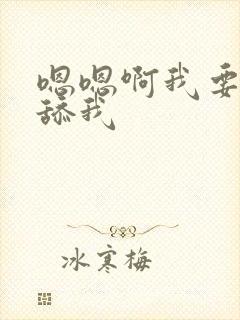 嗯嗯啊我要
舔我
冰寒梅